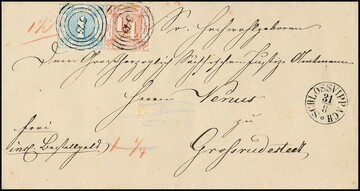 Sr. Hochwohlgeboren
Dem Großherzoglich Sächsischen Justiz Amtmann
Herrn Venus
zu
Großrudestedt
frei
incl. Bestellgeld
SCHLOSSVIPPACH
31
8